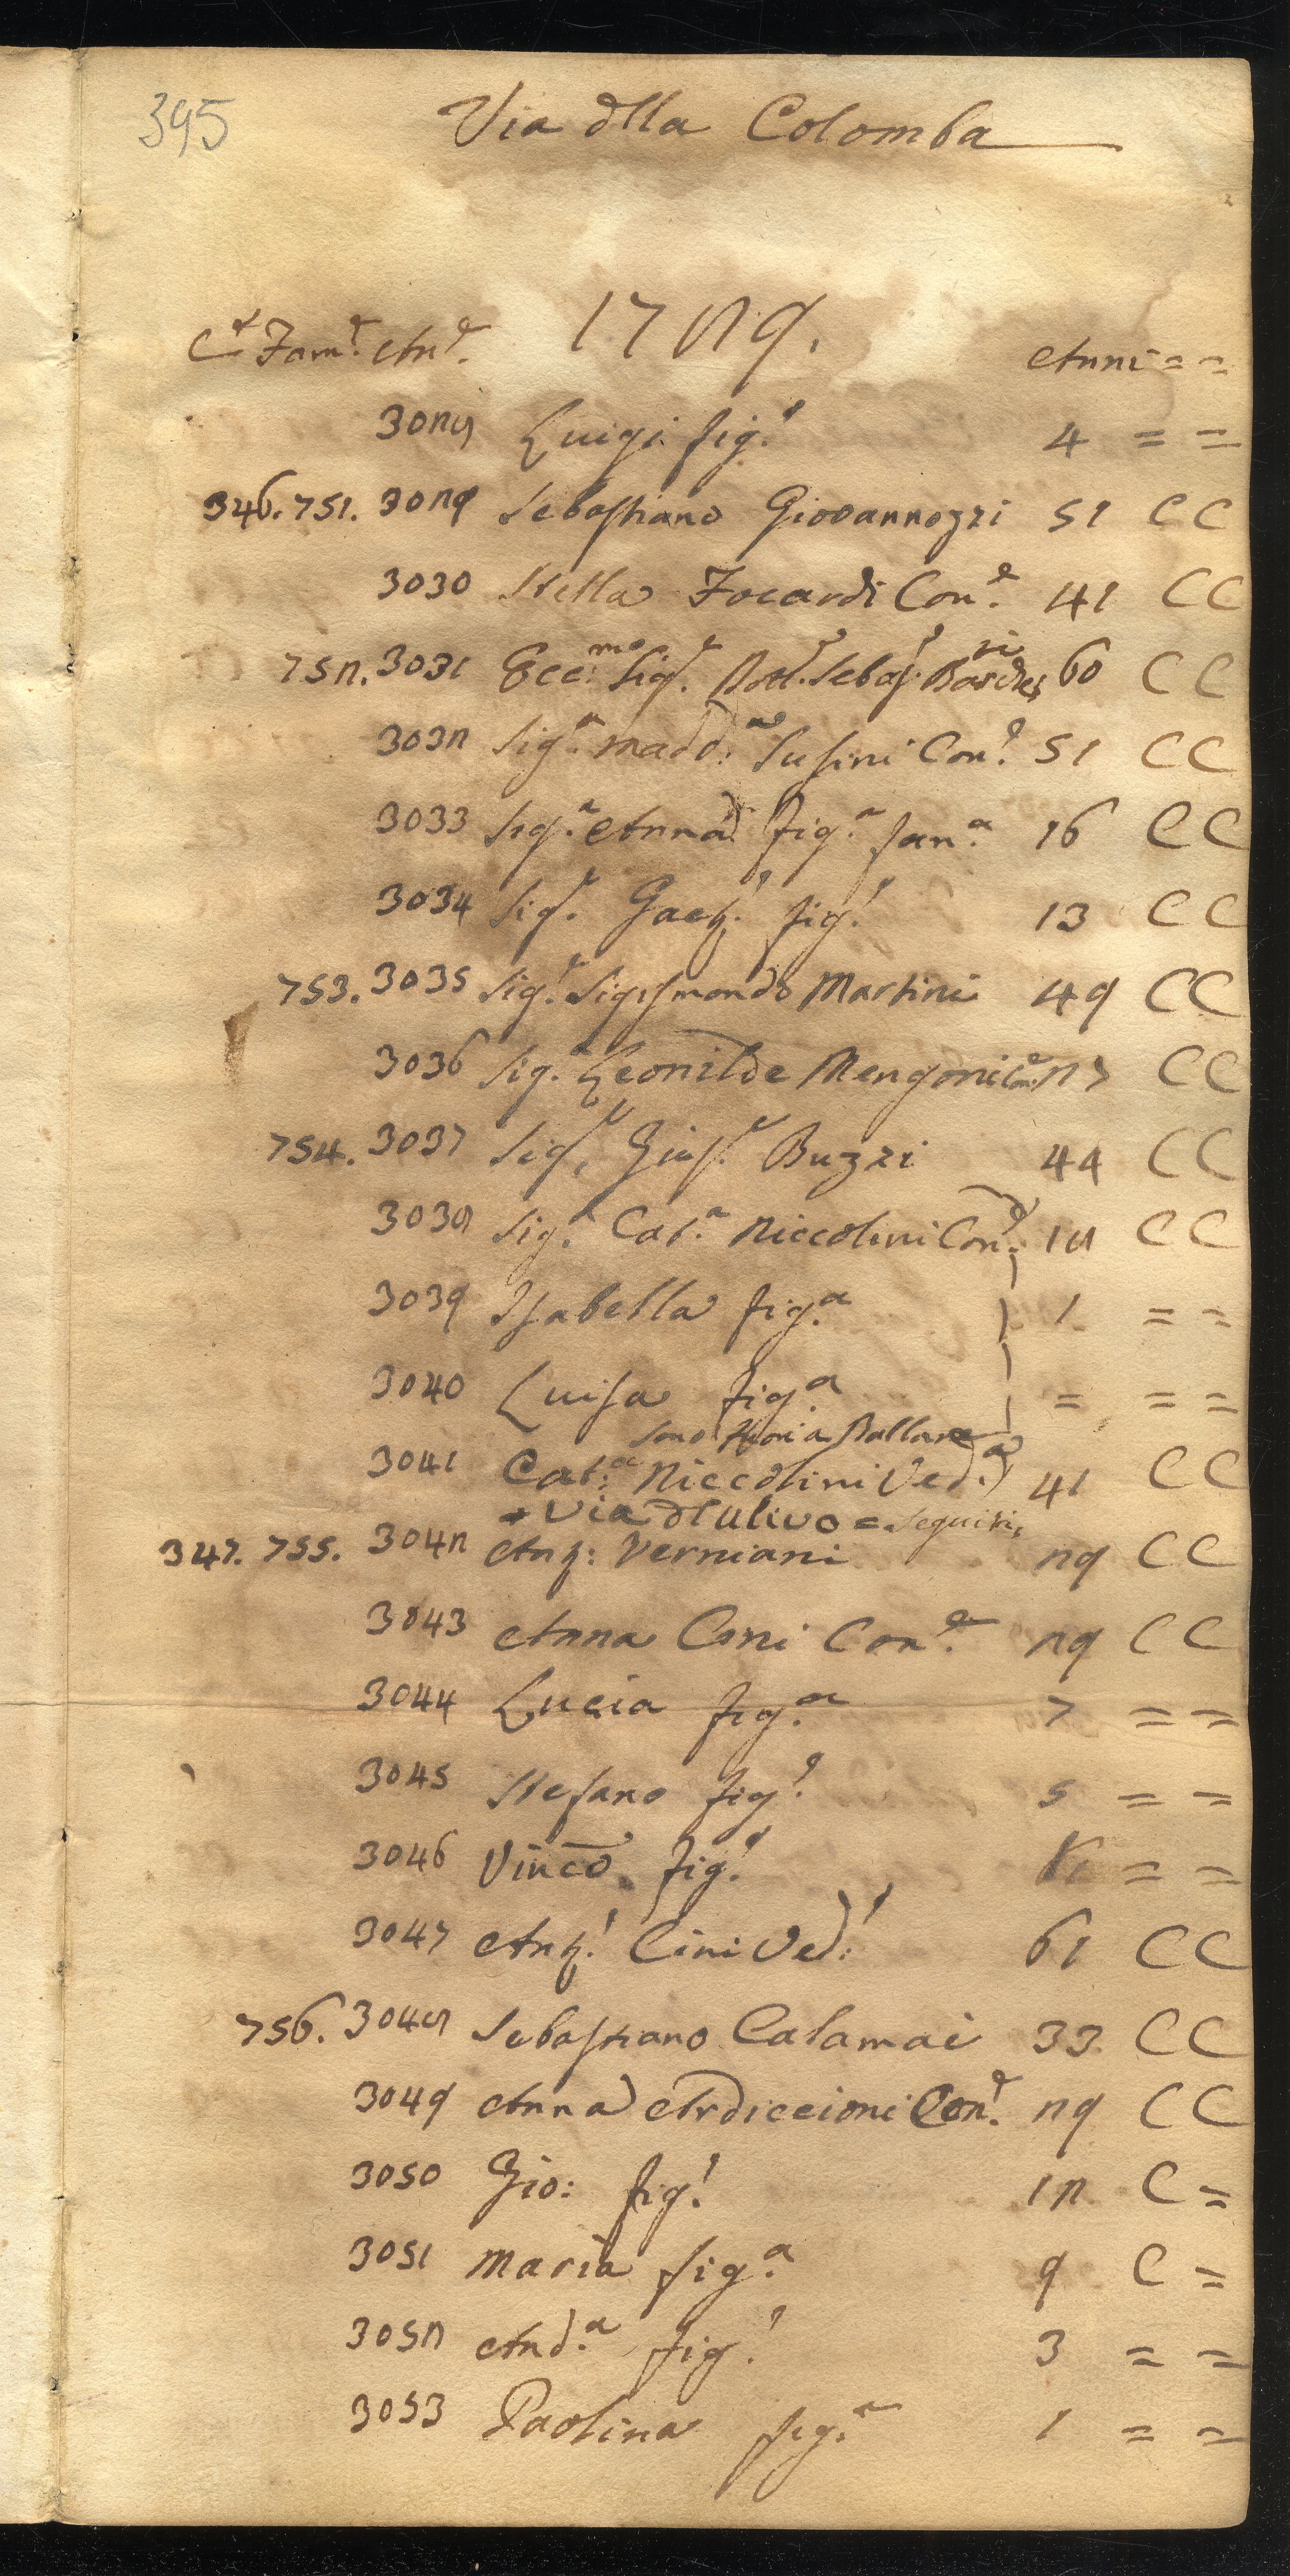 395
Via dlla Colomba
Cᵉ Famᵉ. Anᵉ. 1789.
Anni = =
3028 Luigi figº. 4 = =
346. 751. 3029 Sebastiano Giovannozzi 51 C C
3030 Stella Focardi Conᵉ. 41 C C
752. 3031 Ecc:ᵐᵒ Sigʳ. Dottʳ. Sebasº: 60 C C
3032 Sigᵃ. Madd:ᵃ Susini Conᵉ. 51 C C
3033 Sigᵃ. Anna figᵃ. fanᵃ. 16 C C
3034 Sigʳ. Gaetº. figº. 13 C C
753. 3035 Sigʳ. Sigismondo Martini 49 C C
3036 Sigᵃ. Leonilde Mengoni Conᵉ. 27 C C
754. 3037 Sigʳ. Giusᵉ. Buzzi 44 C C
3038 Sigᵃ. Catᵃ. Niccolini Conᵉ. 18 C C
3039 Isabella figᵃ. 1 = =
3040 Luisa figᵃ. = = =
Sono fuori a Ballare
3041 Cat:ᵃ Niccolini Vedᵃ. 41 C C
+ Via dl Ulivo = Seguiti
347. 755. 3042 Ant: Verniani 29 C C
3043 Anna Coni Conᵉ. 29 C C
3044 Lucia figᵃ. 7 = =
3045 Stefano figº. 5 = =
3046 Vinco. figº. = =
3047 Antº. Cini Vedº: 61 C C
756. 3048 Sebastiano Calamai 33 C C
3049 Anna Ardiccioni Conᵉ. 29 C C
3050 Gio: figº. 12 C =
3051 Maria figᵃ. 9 C =
3052 Andᵃ. figº. 3 = =
3053 Paolina figᵃ. 1 = =